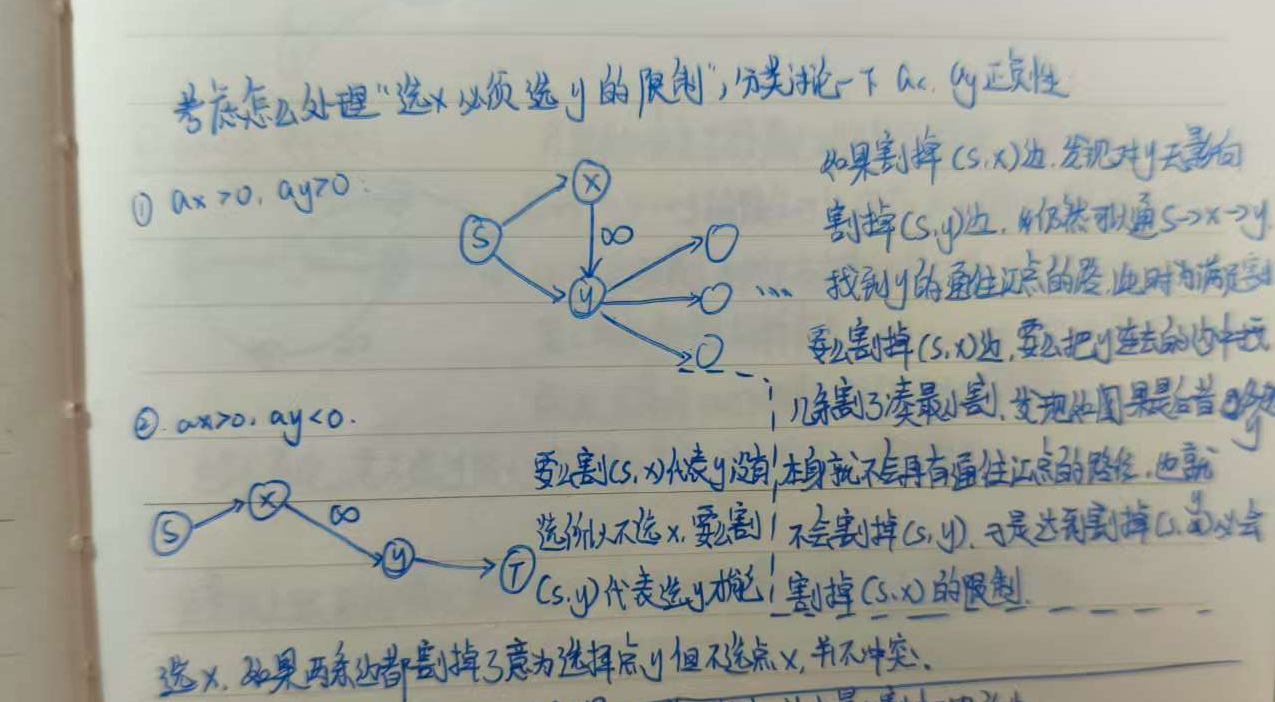 考虑怎么处理“选x必须选y的限制”,分类讨论一下 ax. ay正负性
① ax>0, ay>0:
S
x
∞
y
...
如果割掉(S,x)边,发现对y无影响
割掉(S,y)边, 仍然可以通S→x→y.
找到y的通往汇点的路,此时为满足割
要么割掉(S,x)边,要么把y连去的边中找
几条割了凑最小割,发现如果是后者
y
本身就不会再有通往汇点的路径,也就
不会割掉(S,y),于是达到割掉(S,y)必会
割掉(S,x)的限制.
② ax>0, ay<0.
S
x
∞
y
T
要么割(S,x)代表y没有
选所以不选x,要么割
(S,y)代表选y才能
选x,如果两条边都割掉了意为选择点y但不选点x,并不冲突.